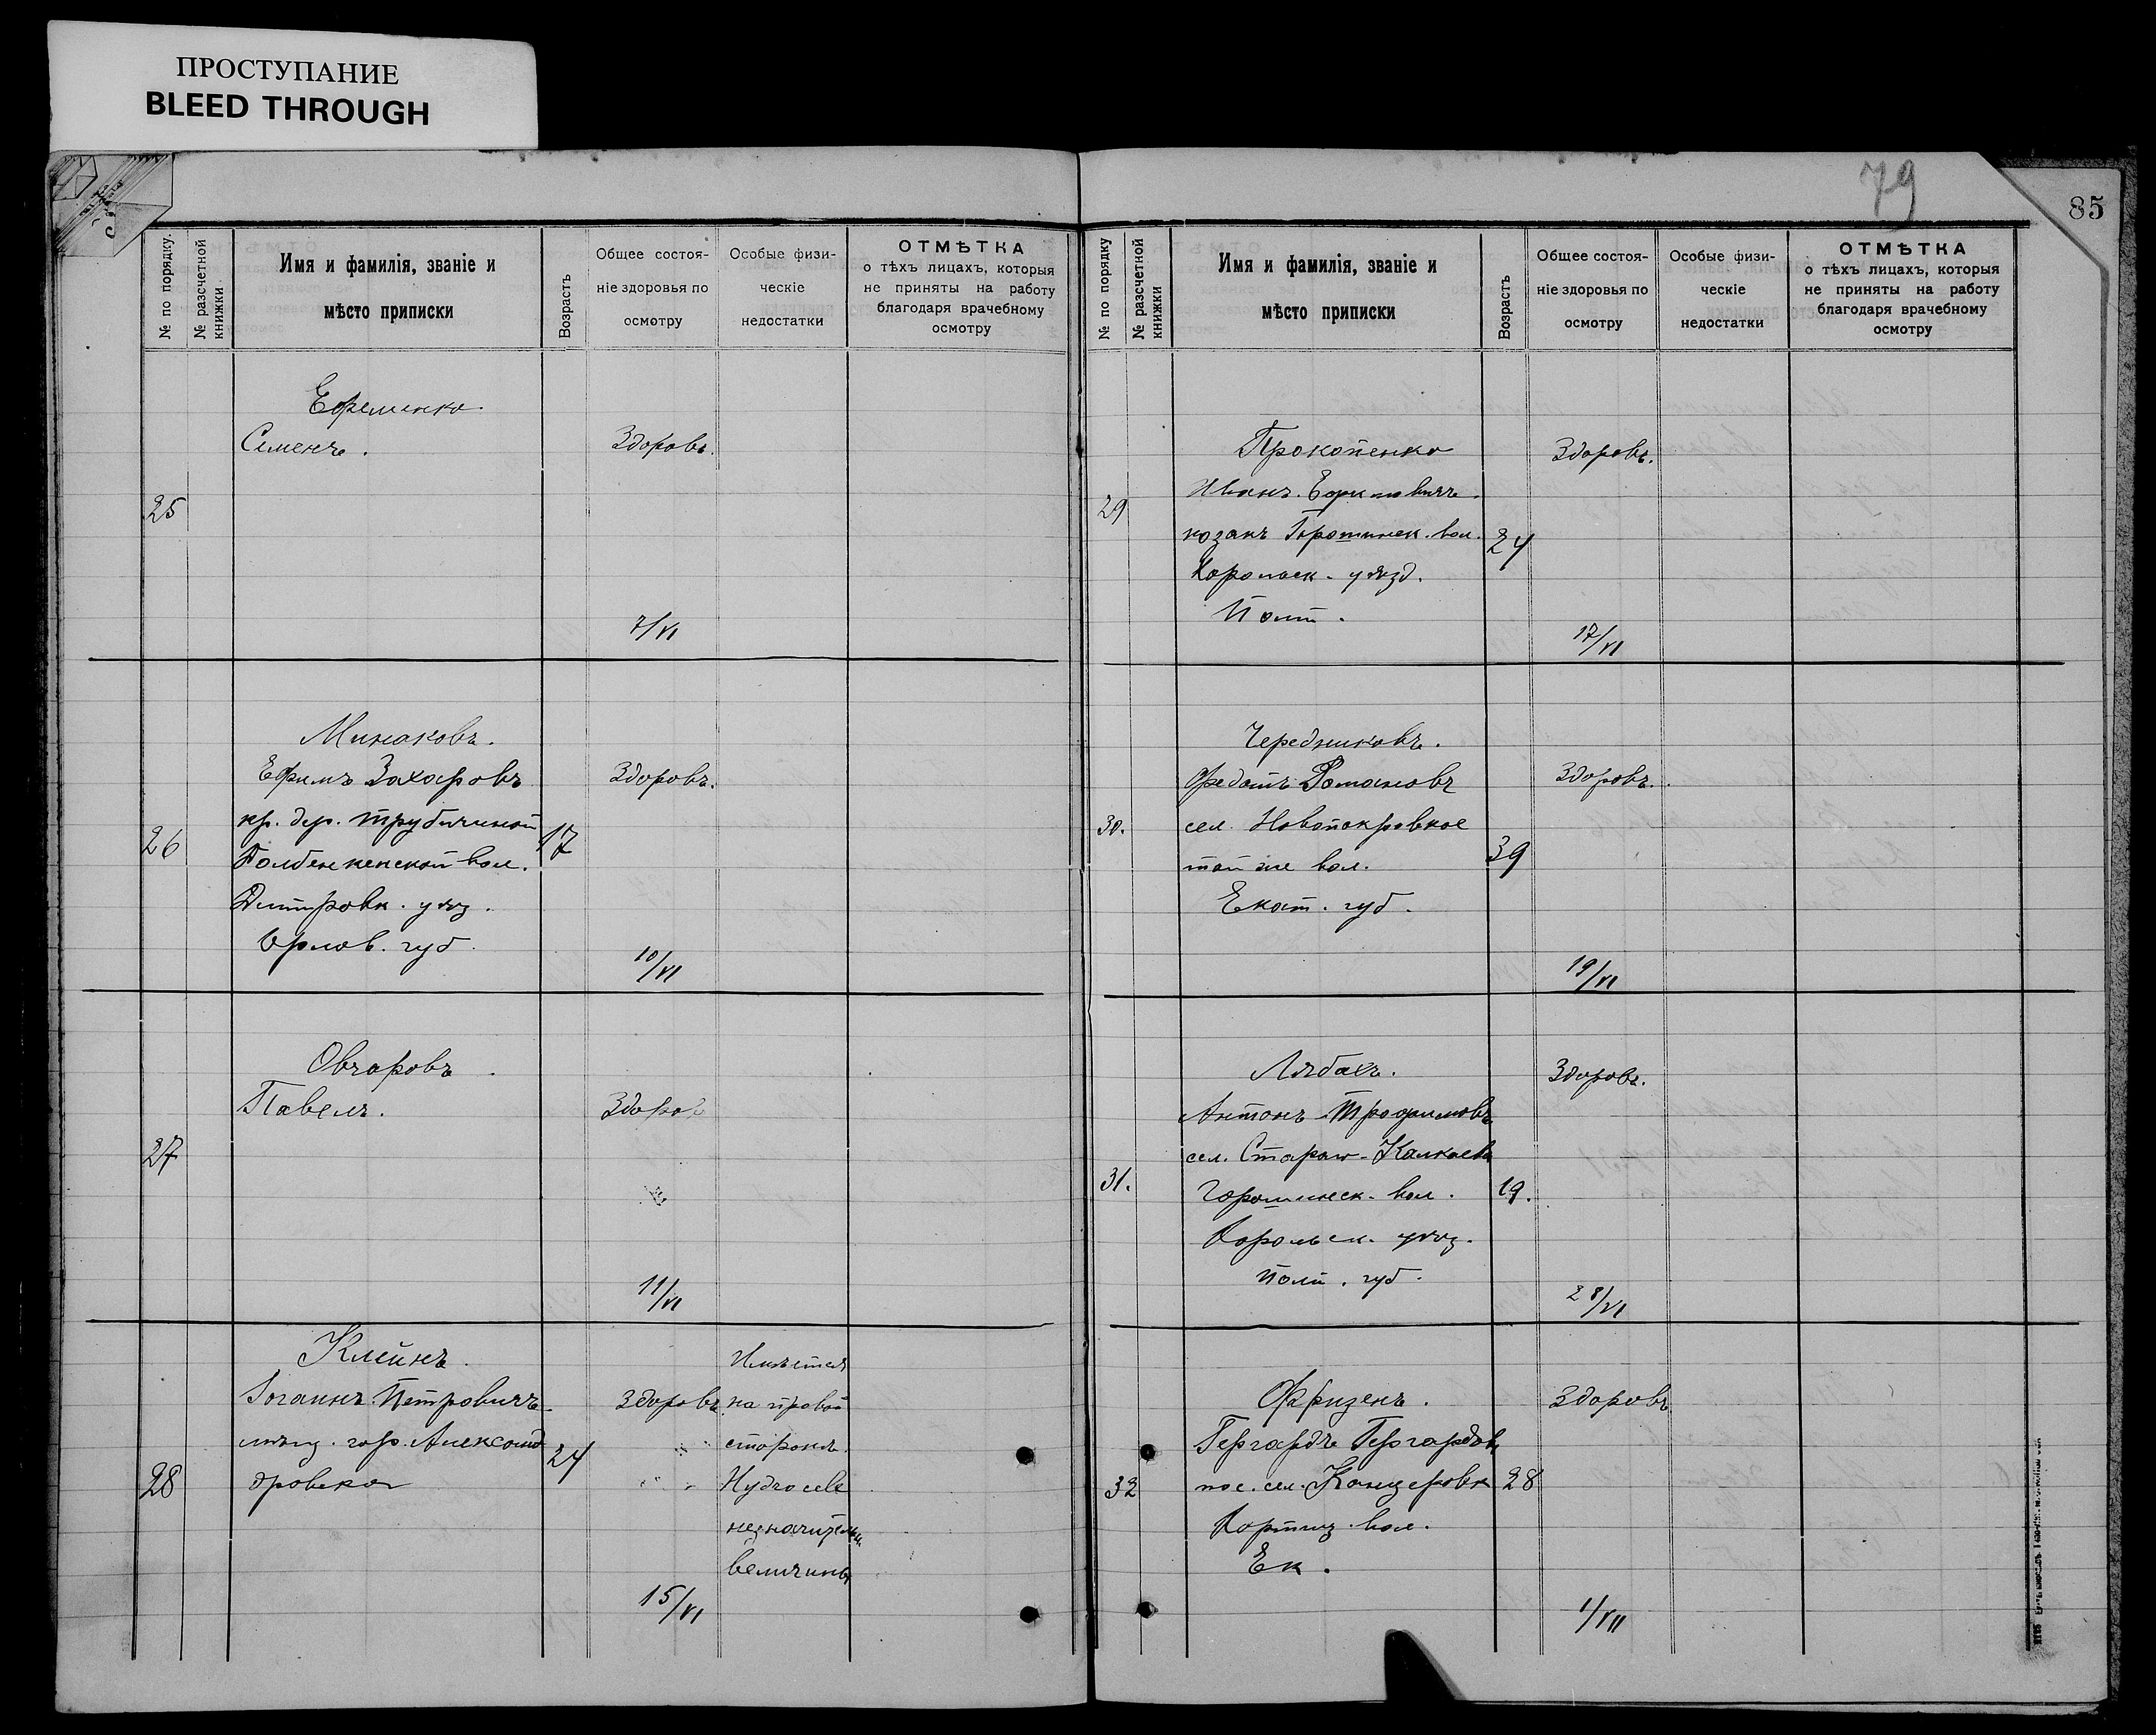 ПРОСТУПАНИЕ
BLEED THROUGH
79
85
№ по порядку.
№ разсчетной книжки
Имя и фамилія, званіе и
мѣсто приписки
Возрастъ
Общее состоя-
ніе здоровья по
осмотру
Особые физи-
ческіе
недостатки
ОТМѢТКА
о тѣхъ лицахъ, которыя
не приняты на работу
благодаря врачебному
осмотру
Ефременко.
Семенъ.
Здоровъ.
25
7/VI
Минаковъ.
Ефимъ Захаровъ
Здоровъ.
кр. дер. Трубичиной
26
17
вол.
Дмитровк. уѣз.
Орлов. губ.
10/VI
Овчаровъ.
Павелъ.
Здоров
27
11/VI
Клейнъ.
Имѣется
Іоганнъ Петровичъ
Здоровъ
на правой
мѣщ. гор. Александ
24
сторонѣ
28
ровска
Hydrocele
незначительн.
величины
15/VI
№ по порядку
№ разсчетной книжки
Имя и фамилія, званіе и
мѣсто приписки
Возрастъ
Общее состоя-
ніе здоровья по
осмотру
Особые физи-
ческіе
недостатки
ОТМѢТКА
о тѣхъ лицахъ, которыя
не приняты на работу
благодаря врачебному
осмотру
Прокопенко
Здоровъ.
29
Иванъ
козакъ Горошинск. вол.
24
Хорольск. уѣзд.
Полт.
17/VI
Чередниковъ.
Федотъ Романовъ
Здоровъ.
30.
сел. Новопокровкое
той же вол.
39
Екат. губ.
19/VI
Лябахъ.
Здоровъ.
Антонъ Трофимовъ
сел.
31.
Горошинск. вол.
19.
Хорольск. уѣз.
Полт. губ.
28/VI
Фризенъ.
Здоровъ
Гергардъ Гергардов
32
пос. сел. Канцеровк
28
Хортиц. вол.
Ек.
1/VII